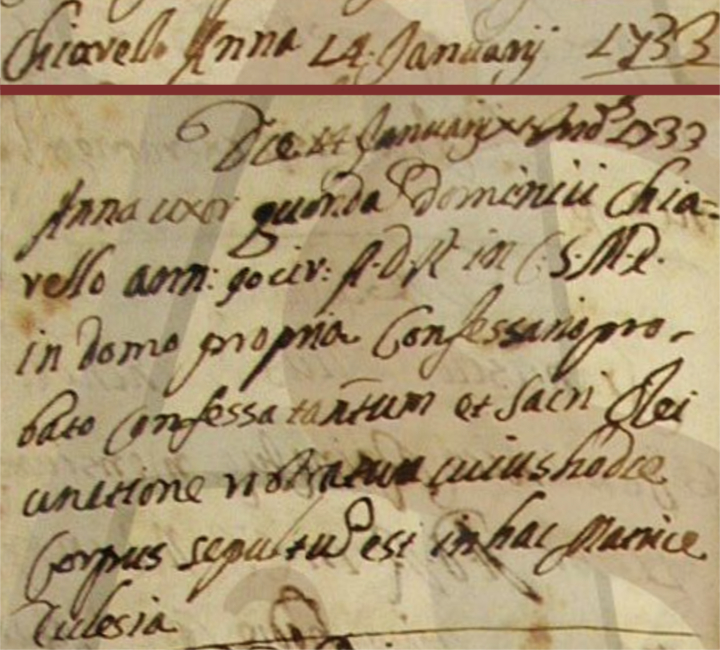 Chiarello Anna 14. Januarij 1733
Die 14 Januarij xj Ind. 1733
Anna uxor quonda Dominici Chia=
rello ann: 90 cir: A. D. R. in C. S. M. E.
in domo propria Confessario pro-
bato Confessa tantum et Sacri Olei
unctione roborata cuius hodie
Corpus sepultu est in hac Matrice
Ecclesia